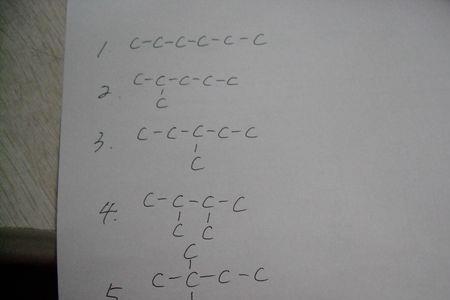 1. C-C-C-C-C-C
2. C-C-C-C-C
C
3. C-C-C-C-C
C
4. C-C-C-C
C C
C
5 C-C-C-C